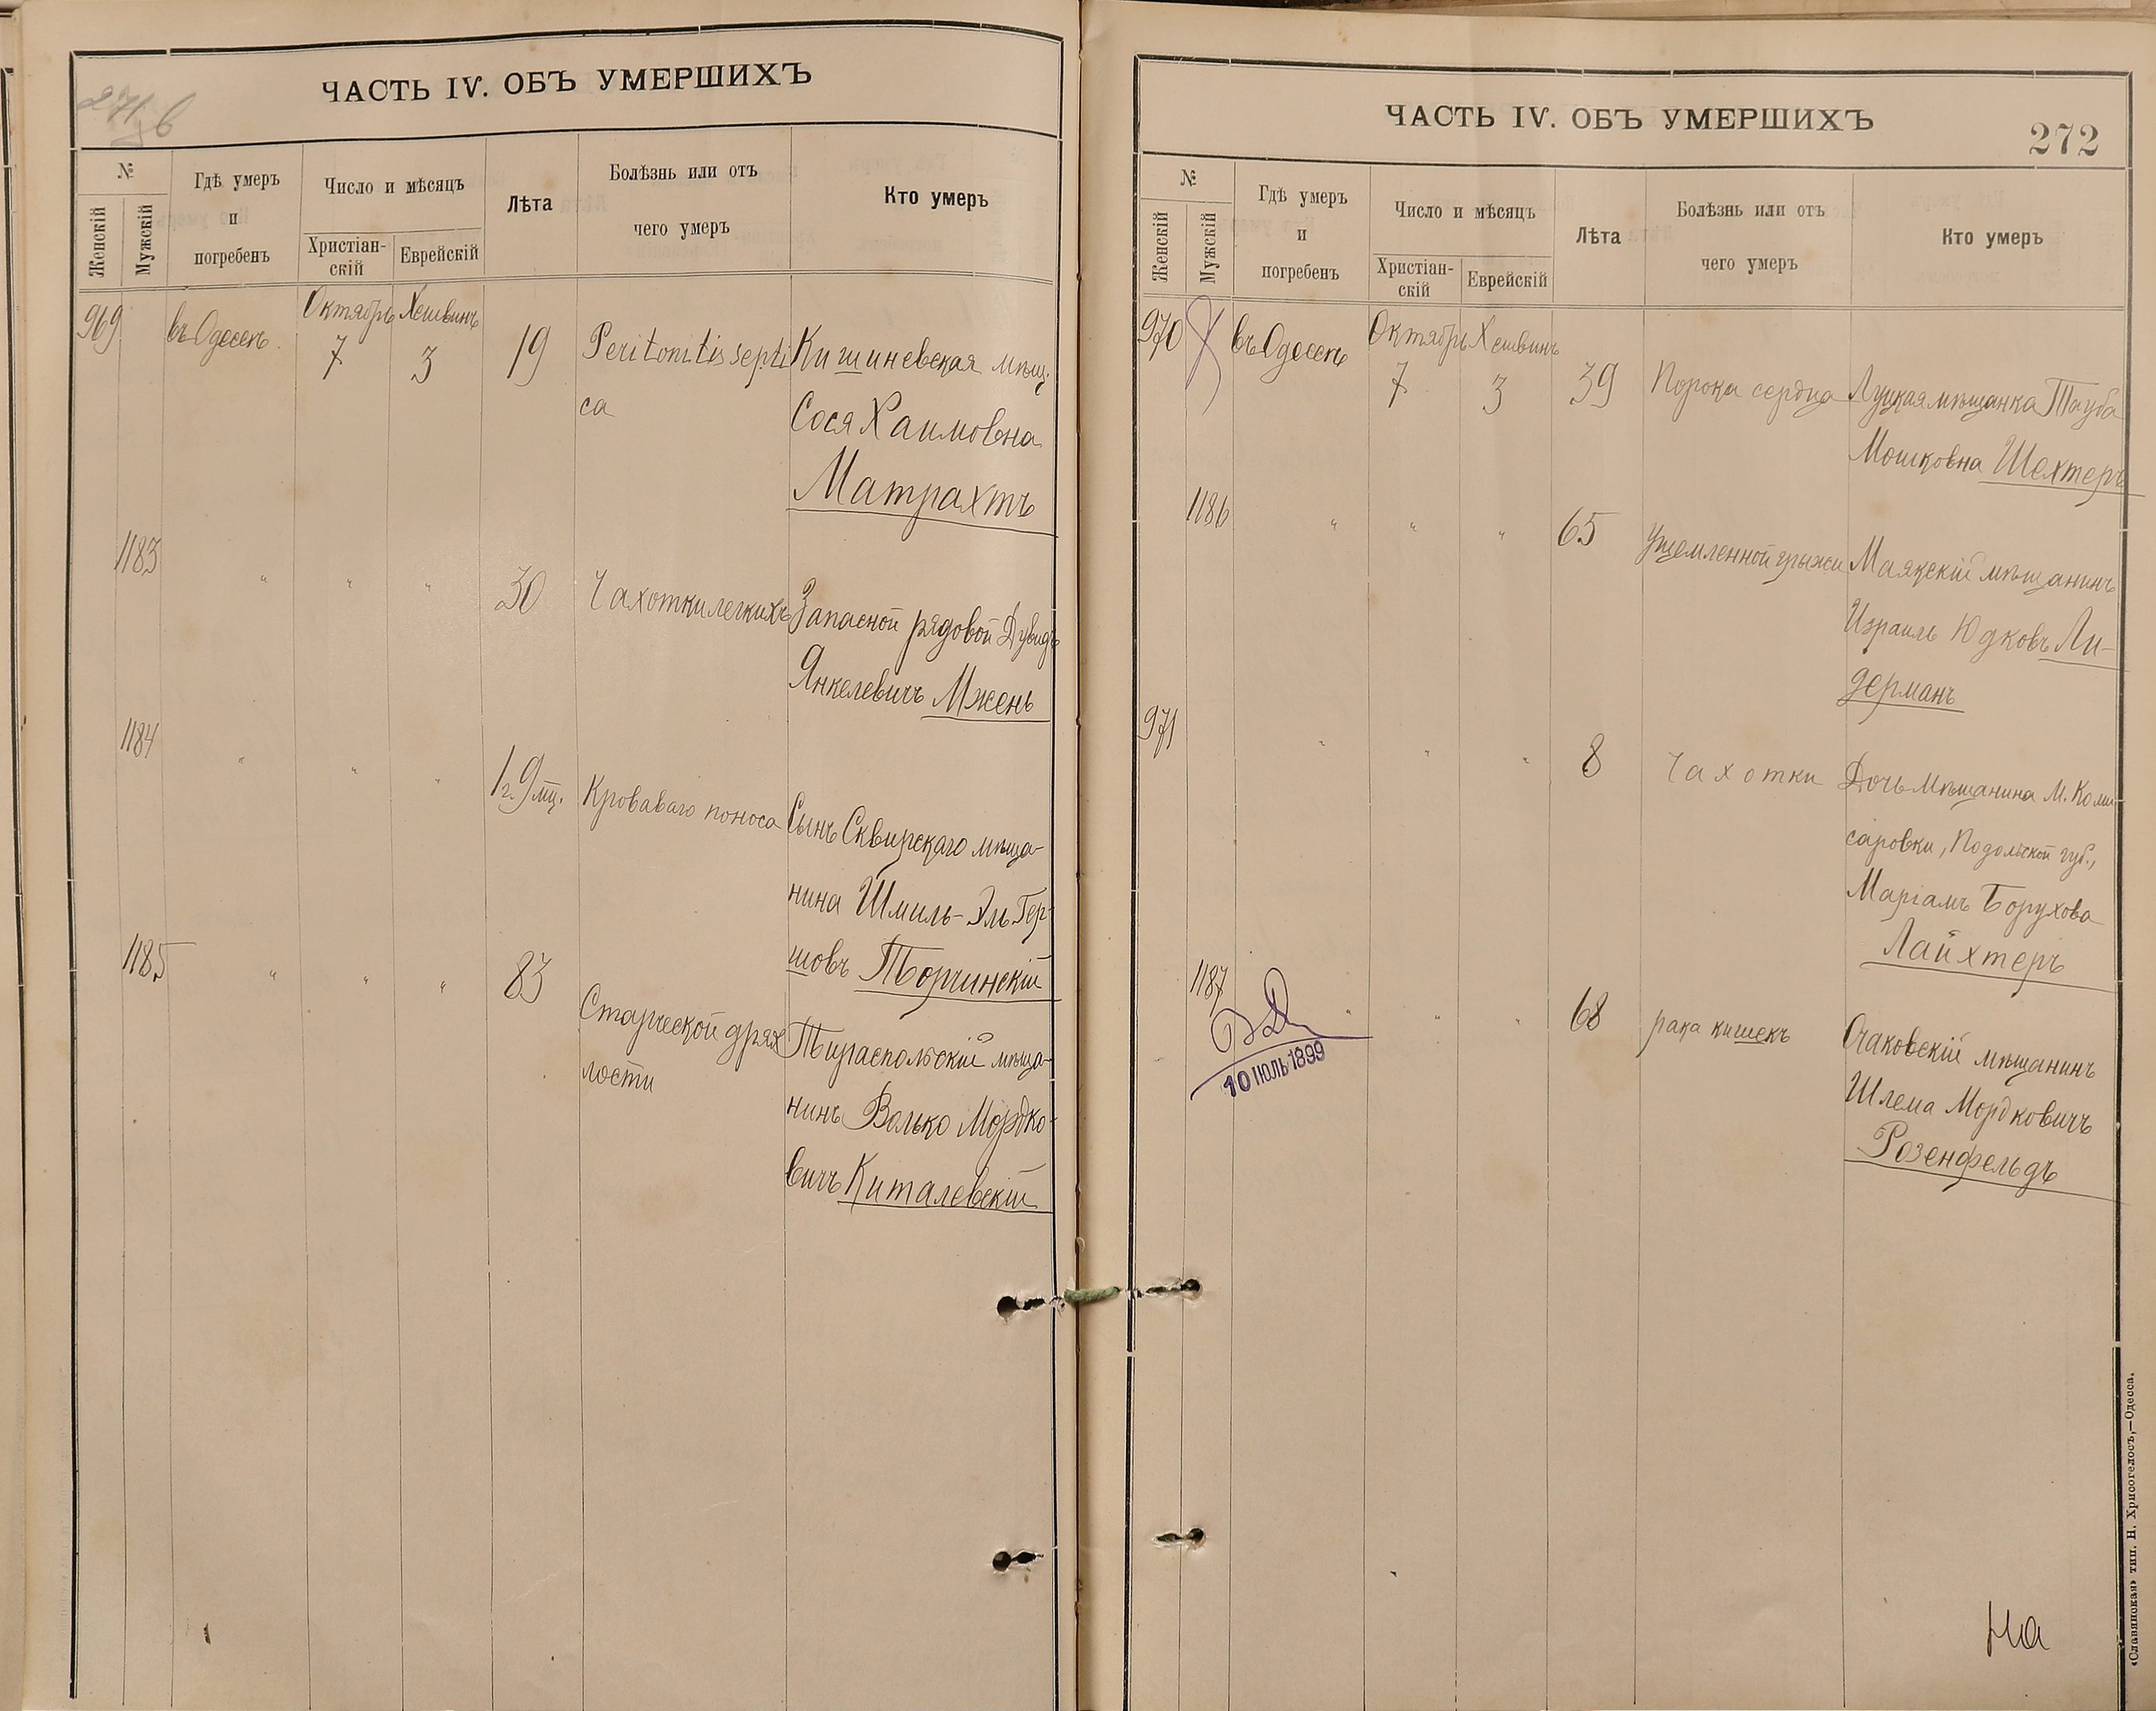 271 в
ЧАСТЬ IV. ОБЪ УМЕРШИХЪ
№
Женскій
Мужскій
Гдѣ умеръ
и
погребенъ
Число и мѣсяцъ
Христіан-
скій
Еврейскій
Лѣта
Болѣзнь или отъ
чего умеръ
Кто умеръ
969
въ Одессѣ
Октябрь
7
Хешвинъ
3
19
Peritonitis septi
ca
Кишиневская мѣщ.
Сося Хаимовна
Матрахтъ
1183
" " "
30
Чахотки легкихъ
Запасной рядовой Дувидъ
Янкелевичъ Мжень
1184
" " "
1 г. 9 мц.
Кроваваго поноса
Сынъ Сквирскаго мѣща-
нина Шмиль-Эль Гер-
шовъ Торчинскій
1185
" " "
83
Старческой дрях
лости
Тираспольскій мѣща-
нинъ Волько Мордко-
вичъ Киталевскій
ЧАСТЬ IV. ОБЪ УМЕРШИХЪ
272
№
Женскій
Мужскій
Гдѣ умеръ
и
погребенъ
Число и мѣсяцъ
Христіан-
скій
Еврейскій
Лѣта
Болѣзнь или отъ
чего умеръ
Кто умеръ
970
въ Одессѣ
Октябрь
7
Хешвинъ
3
39
Порока сердца
Луцкая мѣщанка Тауба
Мошковна Шехтеръ
1186
" " "
65
Ущемленной грыжи
Маякскій мѣщанинъ
Израиль Юдковъ Ли-
дерманъ
971
" " "
8
Чахотки
Дочь мѣщанина М. Коми-
саровки, Подольской губ.,
Маріамъ Борухова
Лайхтеръ
1187
" " "
68
рака кишекъ
Очаковскій мѣщанинъ
Шлема Мордковичъ
Розенфельдъ
10 ІЮЛЬ 1899
На
«Славянская» тип. Н. Хрисогелосъ,—Одесса.